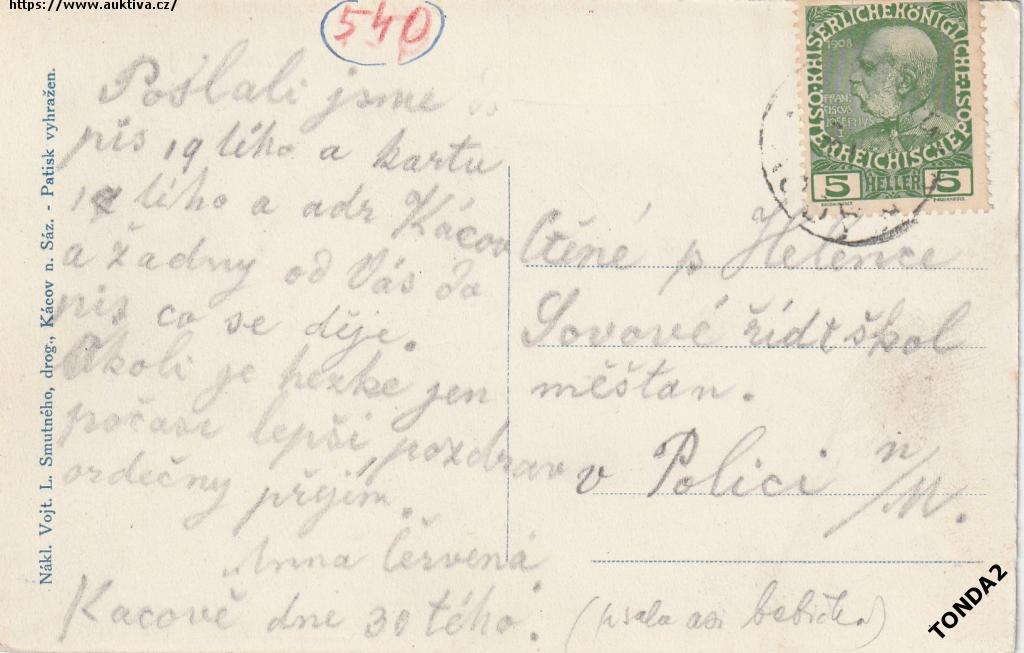 https://www.auktiva.cz/
540
Poslali jsme do
pis 19 tého a kartu
tého a adr Kácov
a žadny od Vás do
pis co se děje.
Okoli je hezke jen
počasi lepši, pozdrav
srdečny přijém.
Anna Červená
Kacově dne 30 tého.
(psala asi babička)
Nákl. Vojt. L. Smutného, drog., Kácov n. Sáz. - Patisk vyhražen.
KAISERLICHEKÖNIGLICHE
ÖSTERREICHISCHE POST
1908
FRAN
CISCUS
JOSEPHUS
I
5 HELLER 5
Ctěné p Helence
Sovové řídt škol
měštan.
v Polici n/M.
TONDA2